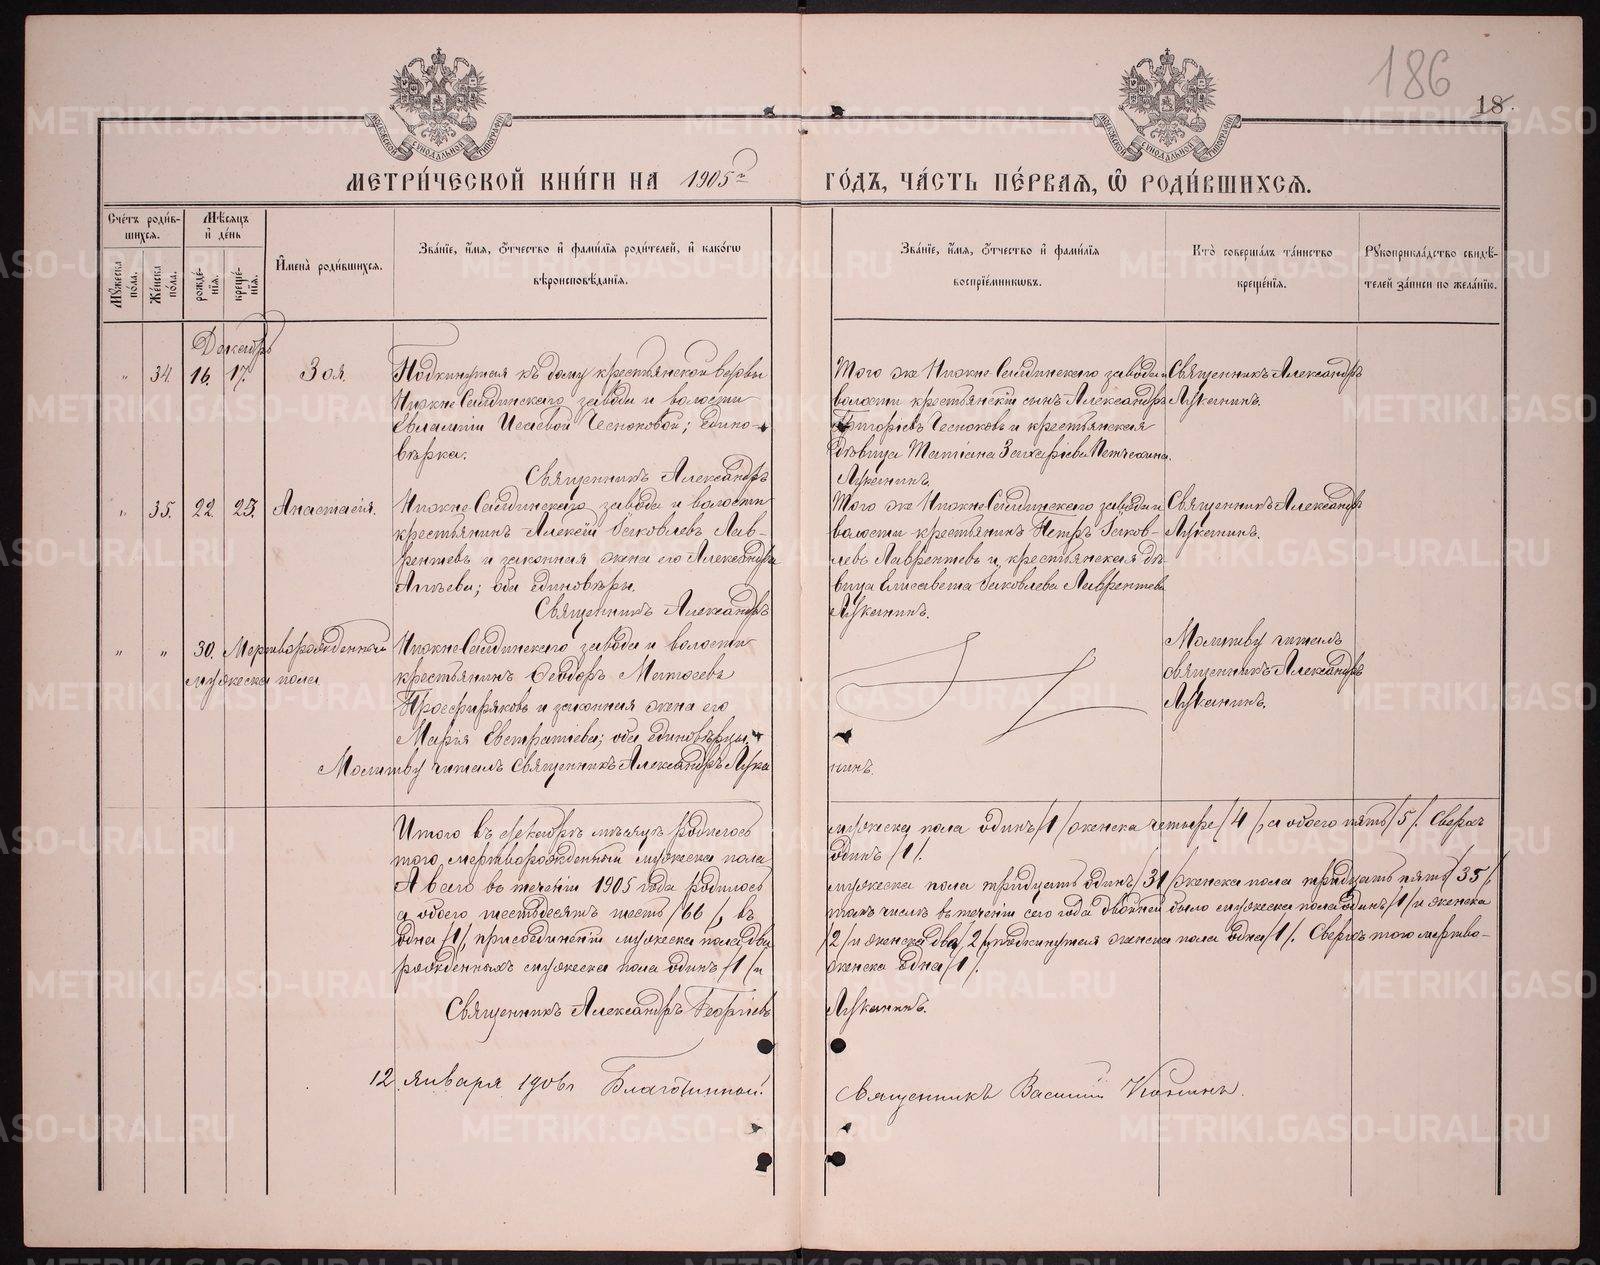 186
18.
МЕТРИ́ЧЕСКОЙ КНИ́ГИ НА 1905й ГО́ДЪ, ЧА́СТЬ ПЕ́РВАЯ, Ѽ РОДИ́ВШИХСЯ.
Сче́тъ роди́в-
шихся.
Мѣ́сяцъ
и҆ де́нь
И҆мена̀ роди́вшихся.
Зва́нїе, и҆́мя, ѻ҆́тчество и҆ фами́лїя роди́телей, и҆ како́гѡ
вѣроисповѣ́данїя.
Зва́нїе, и҆́мя, ѻ҆́тчество и҆ фами́лїя
воспрїе́мникѡвъ.
Кто̀ соверша́лъ та́инство
креще́нїя.
Рꙋкоприкла́дство свидѣ́-
телей за́писи по жела́нїю.
Мꙋ́жеска
по́ла.
Же́нска
по́ла.
рожде́-
нїя.
креще́-
нїя.
Декабрь
" 34. 16. 17. Зоя.
Подкинутая къ дому крестьянской вдовы
Нижне-Салдинскаго завода и волости
Евлампіи Исаевой Чесноковой; едино-
вѣрка.
Священникъ Александръ
Того же Нижне-Салдинскаго завода и
волости крестьянскій сынъ Александръ
Григоріевъ Чесноковъ и крестьянская
дѣвица Татіана Захаріева
Луканинъ.
Священникъ Александръ
Луканинъ.
" 35. 22. 25. Анастасія.
Нижне-Салдинскаго завода и волости
крестьянинъ Алексѣй Іаковлевъ Лав-
рентьевъ и законная жена его Александра
обои единовѣры.
Священникъ Александръ
Того же Нижне-Салдинскаго завода и
волости крестьянинъ Петръ Іаков-
левъ Лаврентьевъ и крестьянская дѣ-
вица Елисавета Іаковлева Лаврентьева
Луканинъ.
Священникъ Александръ
Луканинъ.
" " 30. Мертворожденный
мужеска пола
Нижне-Салдинскаго завода и волости
крестьянинъ Ѳеодоръ Матѳеевъ
и законная жена его
Марія Евстратіева; оба единовѣрцы.
Молитву читалъ священникъ Александръ Лука
нинъ.
Молитву читалъ
священникъ Александръ
Луканинъ.
Итого въ декабрѣ мѣсяцѣ родилось мужеска пола одинъ /1/ женска четыре /4/, а обоего пять /5/. Сверхъ
того мертворожденный мужеска пола одинъ /1/.
А всего въ теченіи 1905 года родилось мужеска пола тридцать одинъ /31/ женска пола тридцать пять /35/,
а обоего шестьдесятъ шесть /66/, въ томъ числѣ въ теченіи сего года двойней было мужеска пола одинъ /1/ и женска
одна /1/, присоединеній мужеска пола два /2/ и женска два /2/, подкинутая женска пола одна /1/. Сверхъ того мертво-
рожденныхъ мужеска пола одинъ /1/ и женска одна /1/.
Священникъ Александръ Георгіевъ Луканинъ.
12 января 1906 г Благочинный: Священникъ Василій
METRIKI.GASO-URAL.RU